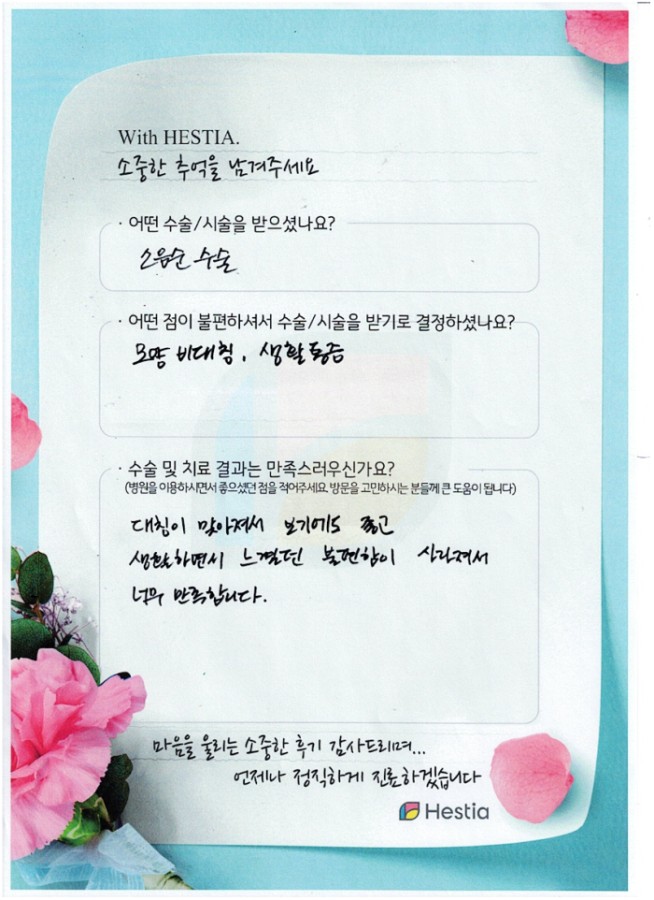 With HESTIA.
소중한 추억을 남겨주세요
· 어떤 수술/시술을 받으셨나요?
소음순 수술
· 어떤 점이 불편하셔서 수술/시술을 받기로 결정하셨나요?
모양 비대칭, 생활통증
· 수술 및 치료 결과는 만족스러우신가요?
(병원을 이용하시면서 좋으셨던 점을 적어주세요. 방문을 고민하시는 분들께 큰 도움이 됩니다)
대칭이 맞아져서 보기에도 좋고
생활하면서 느꼈던 불편함이 사라져서
너무 만족합니다.
마음을 울리는 소중한 후기 감사드리며...
언제나 정직하게 진료하겠습니다
Hestia